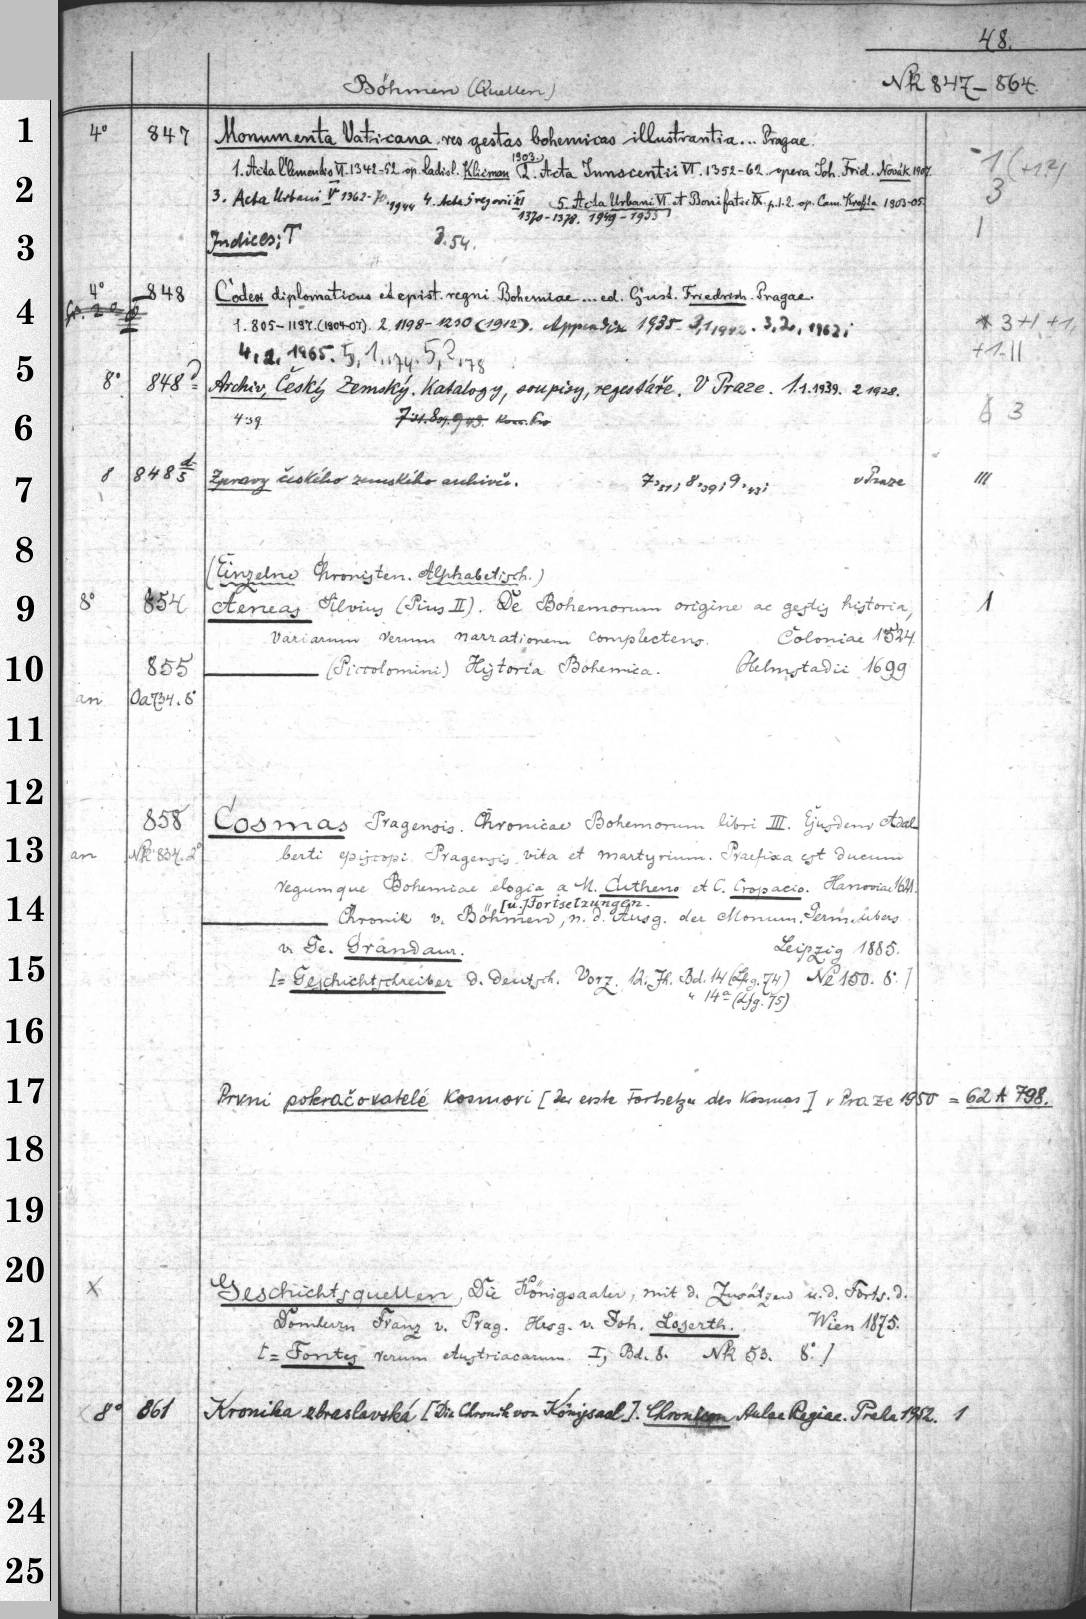 48.
Böhmen (Quellen) Nk 847–864.
1 4° 847 Monumenta Vaticana res gestas bohemicas illustrantia... Pragae.
1. Acta Clementis VI. 1342-52 op. Ladisl. Klicman 1903. 2. Acta Innocentii VI. 1352-62. opera Joh. Frid. Novák 1907. 1 (+1?)
2 3. Acta Urbani V 1362-70. 1944 4. Acta Gregorii XI 1370-1378. 1949-1953 5. Acta Urbani VI. et Bonifatii IX. p.1-2. op. Cam. Krofta 1903-05. 3
3 Indices; T 3.54. 1
4° 848 Codex diplomaticus et epist. regni Bohemiae... ed. Gust. Friedrich. Pragae.
4 1. 805-1197. (1904-07). 2. 1198-1230 (1912). Appendix 1935. 3,1 1942. 3,2, 1962; 3+1, +1,
4,2, 1965. 5,1, 174. 5,2, 178 +1-II
5 8° 848 Archiv, Český Zemský. Katalogy, soupisy, regestáře. V Praze. 1. 1.1939. 2 1928.
6 4.39. 3
7 8 848 Zprávy českého zemského archivu. 7,31; 8,39; 9,43; v Praze III
8
(Einzelne Chronisten. Alphabetisch.)
9 8° 854 Aeneas Silvius (Pius II). De Bohemorum origine ac gestis historia, 1
variarum rerum narrationem complectens. Coloniae 1524
10 855 ——— (Piccolomini) Historia Bohemica. Helmstadii 1699
an Oa 734. 8°
11
12
858 Cosmas Pragensis. Chronicae Bohemorum libri III. Ejusdem Adal-
13 an Nk 834. 2° berti episcopi Pragensis vita et martyrium. Praefixa est ducum
regumque Bohemiae elogia a M. Cutheno et C. Cropacio. Hanoviae 1621.
14 [u. Fortsetzungen.
——— Chronik v. Böhmen, n. d. Ausg. der Monum. Germ. übers.
v. Ge. Grandaur. Leipzig 1885.
15 [= Geschichtschreiber d. deutsch. Vorz. 12. Jh. Bd. 14 (Lfg. 74) Ne 150. 8°. ]
" 14a (Lfg. 75)
16
17 První pokračovatelé Kosmovi [Der erste Fortsetzer des Kosmas] v Praze 1950 = 62 A 798.
18
19
20 x Geschichtsquellen, Die Königsaaler, mit d. Zusätzen u. d. Forts. d.
21 Domherrn Franz v. Prag. Hrsg. v. Joh. Loserth. Wien 1875.
[= Fontes rerum Austriacarum. I, Bd. 8. Nk 53. 8°. ]
22 8° 861 Kronika zbraslavská [Die Chronik von Königsaal]. Chronicon Aulae Regiae. Praha 1952. 1
23
24
25